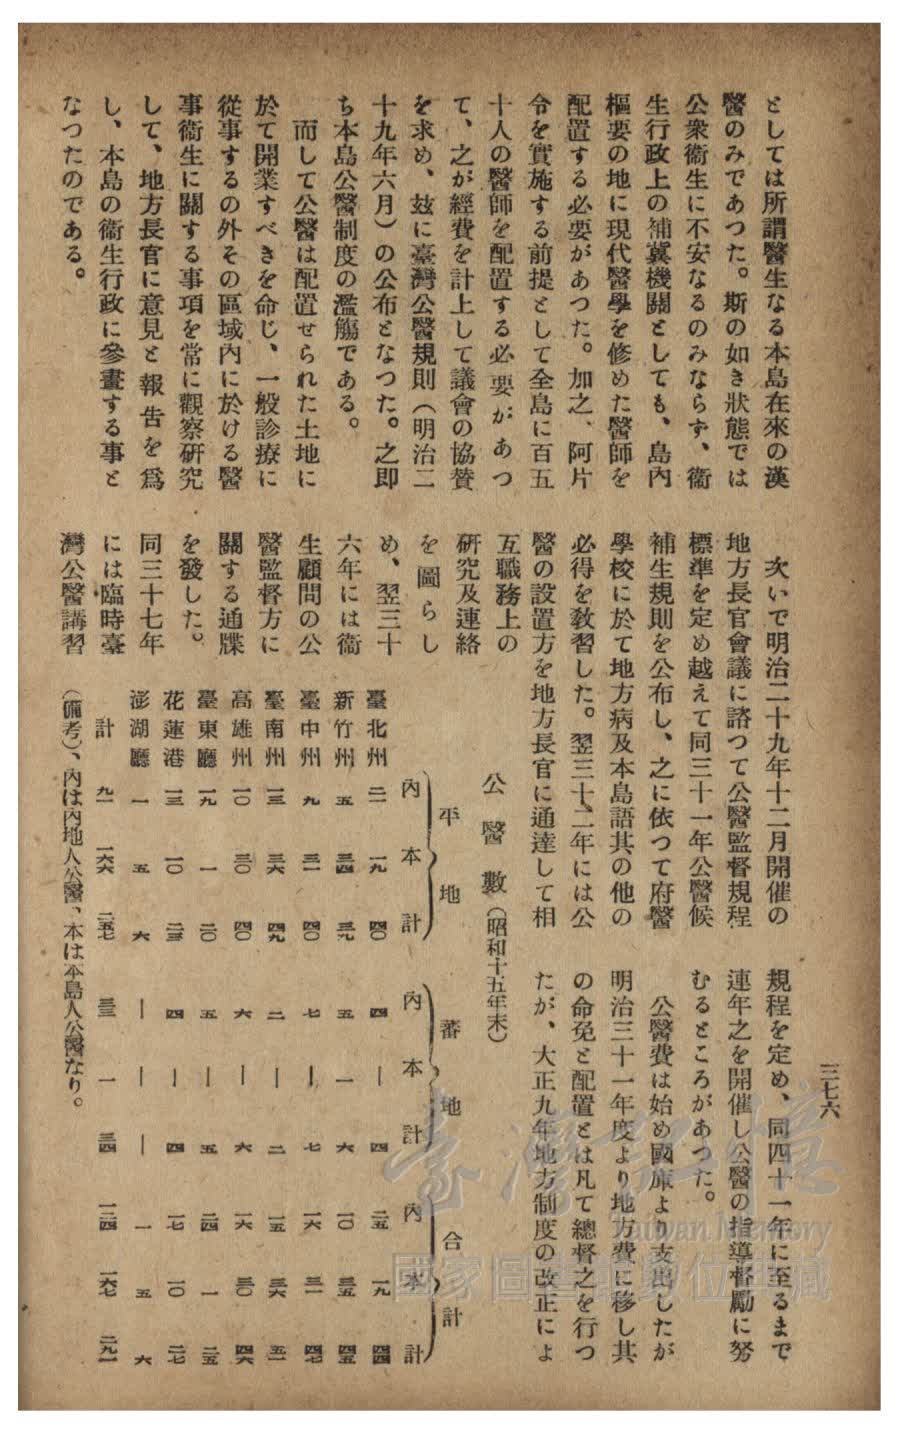 三七六
としては所謂醫生なる本島在來の漢
醫のみであつた。斯の如き狀態では
公衆衞生に不安なるのみならず、衞
生行政上の補冀機關としても、島內
樞要の地に現代醫學を修めた醫師を
配置する必要があつた。加之、阿片
令を實施する前提として全島に百五
十人の醫師を配置する必要があつ
て、之が經費を計上して議會の協贊
を求め、玆に臺灣公醫規則(明治二
十九年六月)の公布となつた。之卽
ち本島公醫制度の濫觴である。
而して公醫は配置せられた土地に
於て開業すべきを命じ、一般診療に
從事するの外その區域內に於ける醫
事衞生に關する事項を常に觀察硏究
して、地方長官に意見と報吿を爲
し、本島の衞生行政に參畫する事と
なつたのである。
次いで明治二十九年十二月開催の
地方長官會議に諮つて公醫監督規程
標準を定め越えて同三十一年公醫候
補生規則を公布し、之に依つて府醫
學校に於て地方病及本島語其の他の
必得を敎習した。翌三十二年には公
醫の設置方を地方長官に通達して相
互職務上の
硏究及連絡
を圖らし
め、翌三十
六年には衞
生顧問の公
醫監督方に
關する通牒
を發した。
同三十七年
には臨時臺
灣公醫講習
規程を定め、同四十一年に至るまで
連年之を開催し公醫の指導督勵に努
むるところがあつた。
公醫費は始め國庫より支出したが
明治三十一年度より地方費に移し其
の命免と配置とは凡て總督之を行つ
たが、大正九年地方制度の改正によ
公醫數(昭和十五年末)
平地 蕃地 合計
內 本 計 內 本 計 內 本 計
臺北州 二一 一九 四〇 四 ― 四 二五 一九 四四
新竹州 五 三四 三九 五 一 六 一〇 三五 四五
臺中州 九 三一 四〇 七 ― 七 一六 三一 四七
臺南州 一三 三六 四九 二 ― 二 一五 三六 五一
高雄州 一〇 三〇 四〇 六 ― 六 一六 三〇 四六
臺東廳 一九 一 二〇 五 ― 五 二四 一 二五
花蓮港 一三 一〇 二三 四 ― 四 一七 一〇 二七
澎湖廳 一 五 六 ― ― ― 一 五 六
計 九一 一六六 二五七 三三 一 三四 一二四 一六七 二九一
(備考)、內は內地人公醫、本は本島人公醫なり。
臺灣記憶
Taiwan Memory
國家圖書館數位典藏